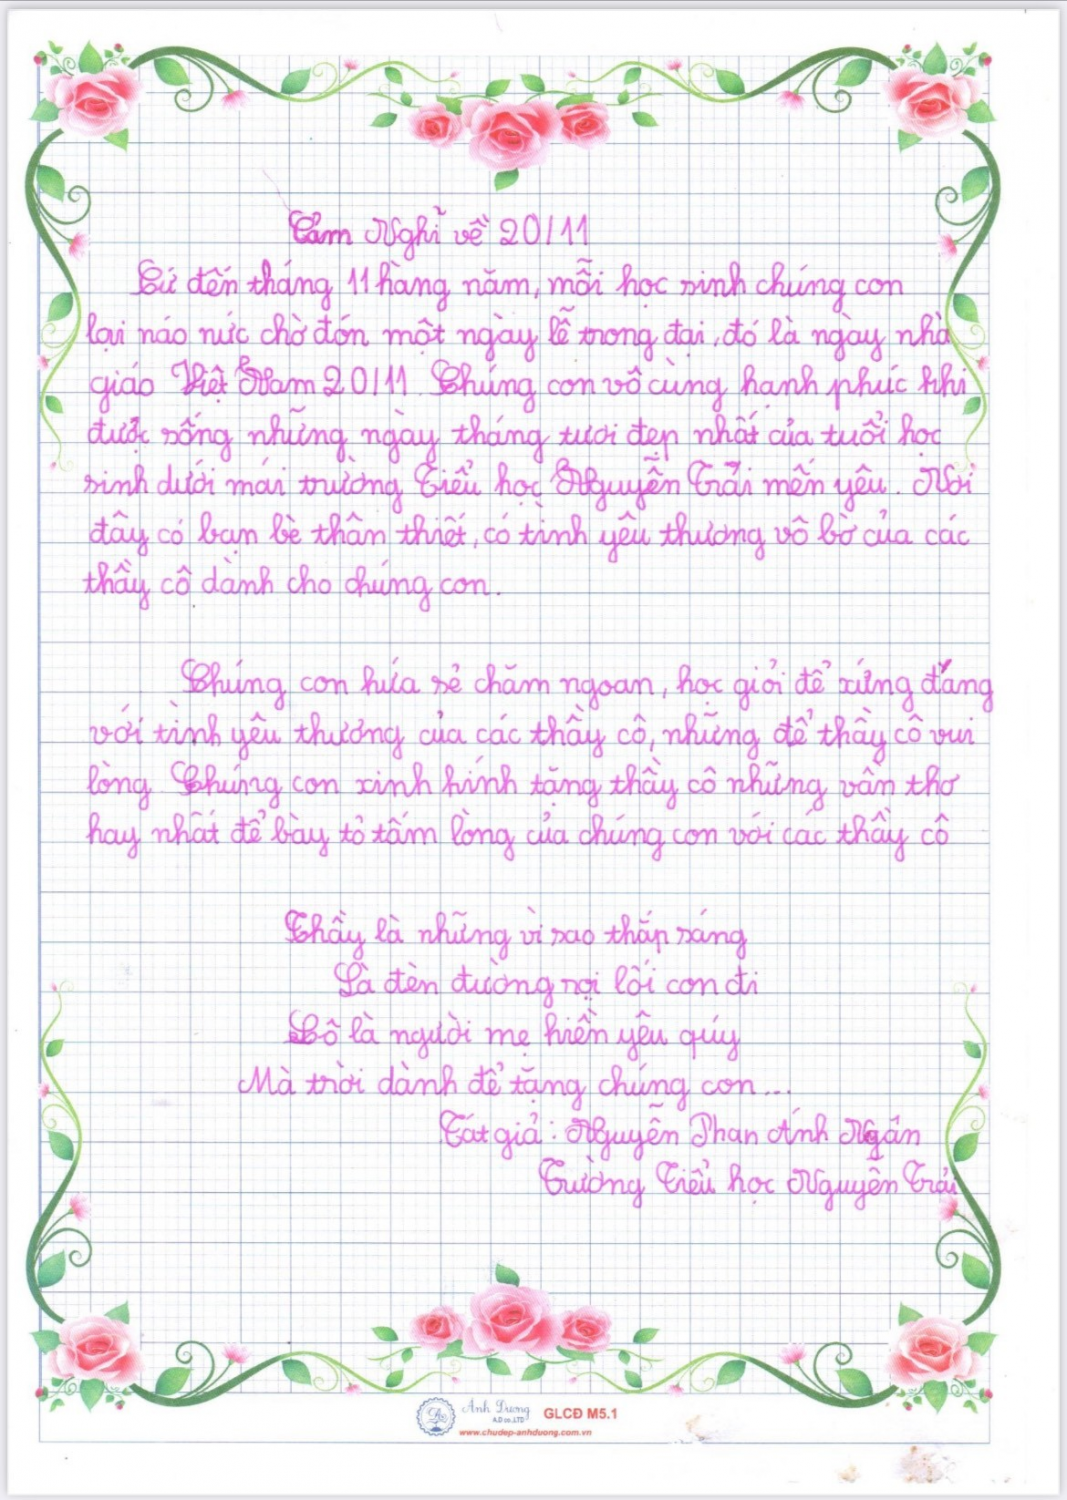 Cảm Nghĩ về 20/11
Cứ đến tháng 11 hàng năm, mỗi học sinh chúng con
lại náo nức chờ đón một ngày lễ trong đại, đó là ngày nhà
giáo Việt Nam 20/11. Chúng con vô cùng hạnh phúc khi
được sống những ngày tháng tươi đẹp nhất của tuổi học
sinh dưới mái trường Tiểu học Nguyễn Trãi mến yêu. Nơi
đây có bạn bè thân thiết, có tình yêu thương vô bờ của các
thầy cô dành cho chúng con.
Chúng con hứa sẻ chăm ngoan, học giỏi để xứng đáng
với tình yêu thương của các thầy cô, những để thầy cô vui
lòng Chúng con xinh kính tặng thầy cô những vân thơ
hay nhất để bày tỏ tấm lòng của chúng con với các thầy cô
Thầy là những vì sao thắp sáng
Là đèn đường rọi lối con đi
Cô là người mẹ hiền yêu quý
Mà trời dành để tặng chúng con...
Tát giả: Nguyễn Phan Ánh Ngân
Trường Tiểu học Nguyễn Trãi
Ánh Dương
A.D co.,LTD
GLCĐ M5.1
www.chudep-anhduong.com.vn